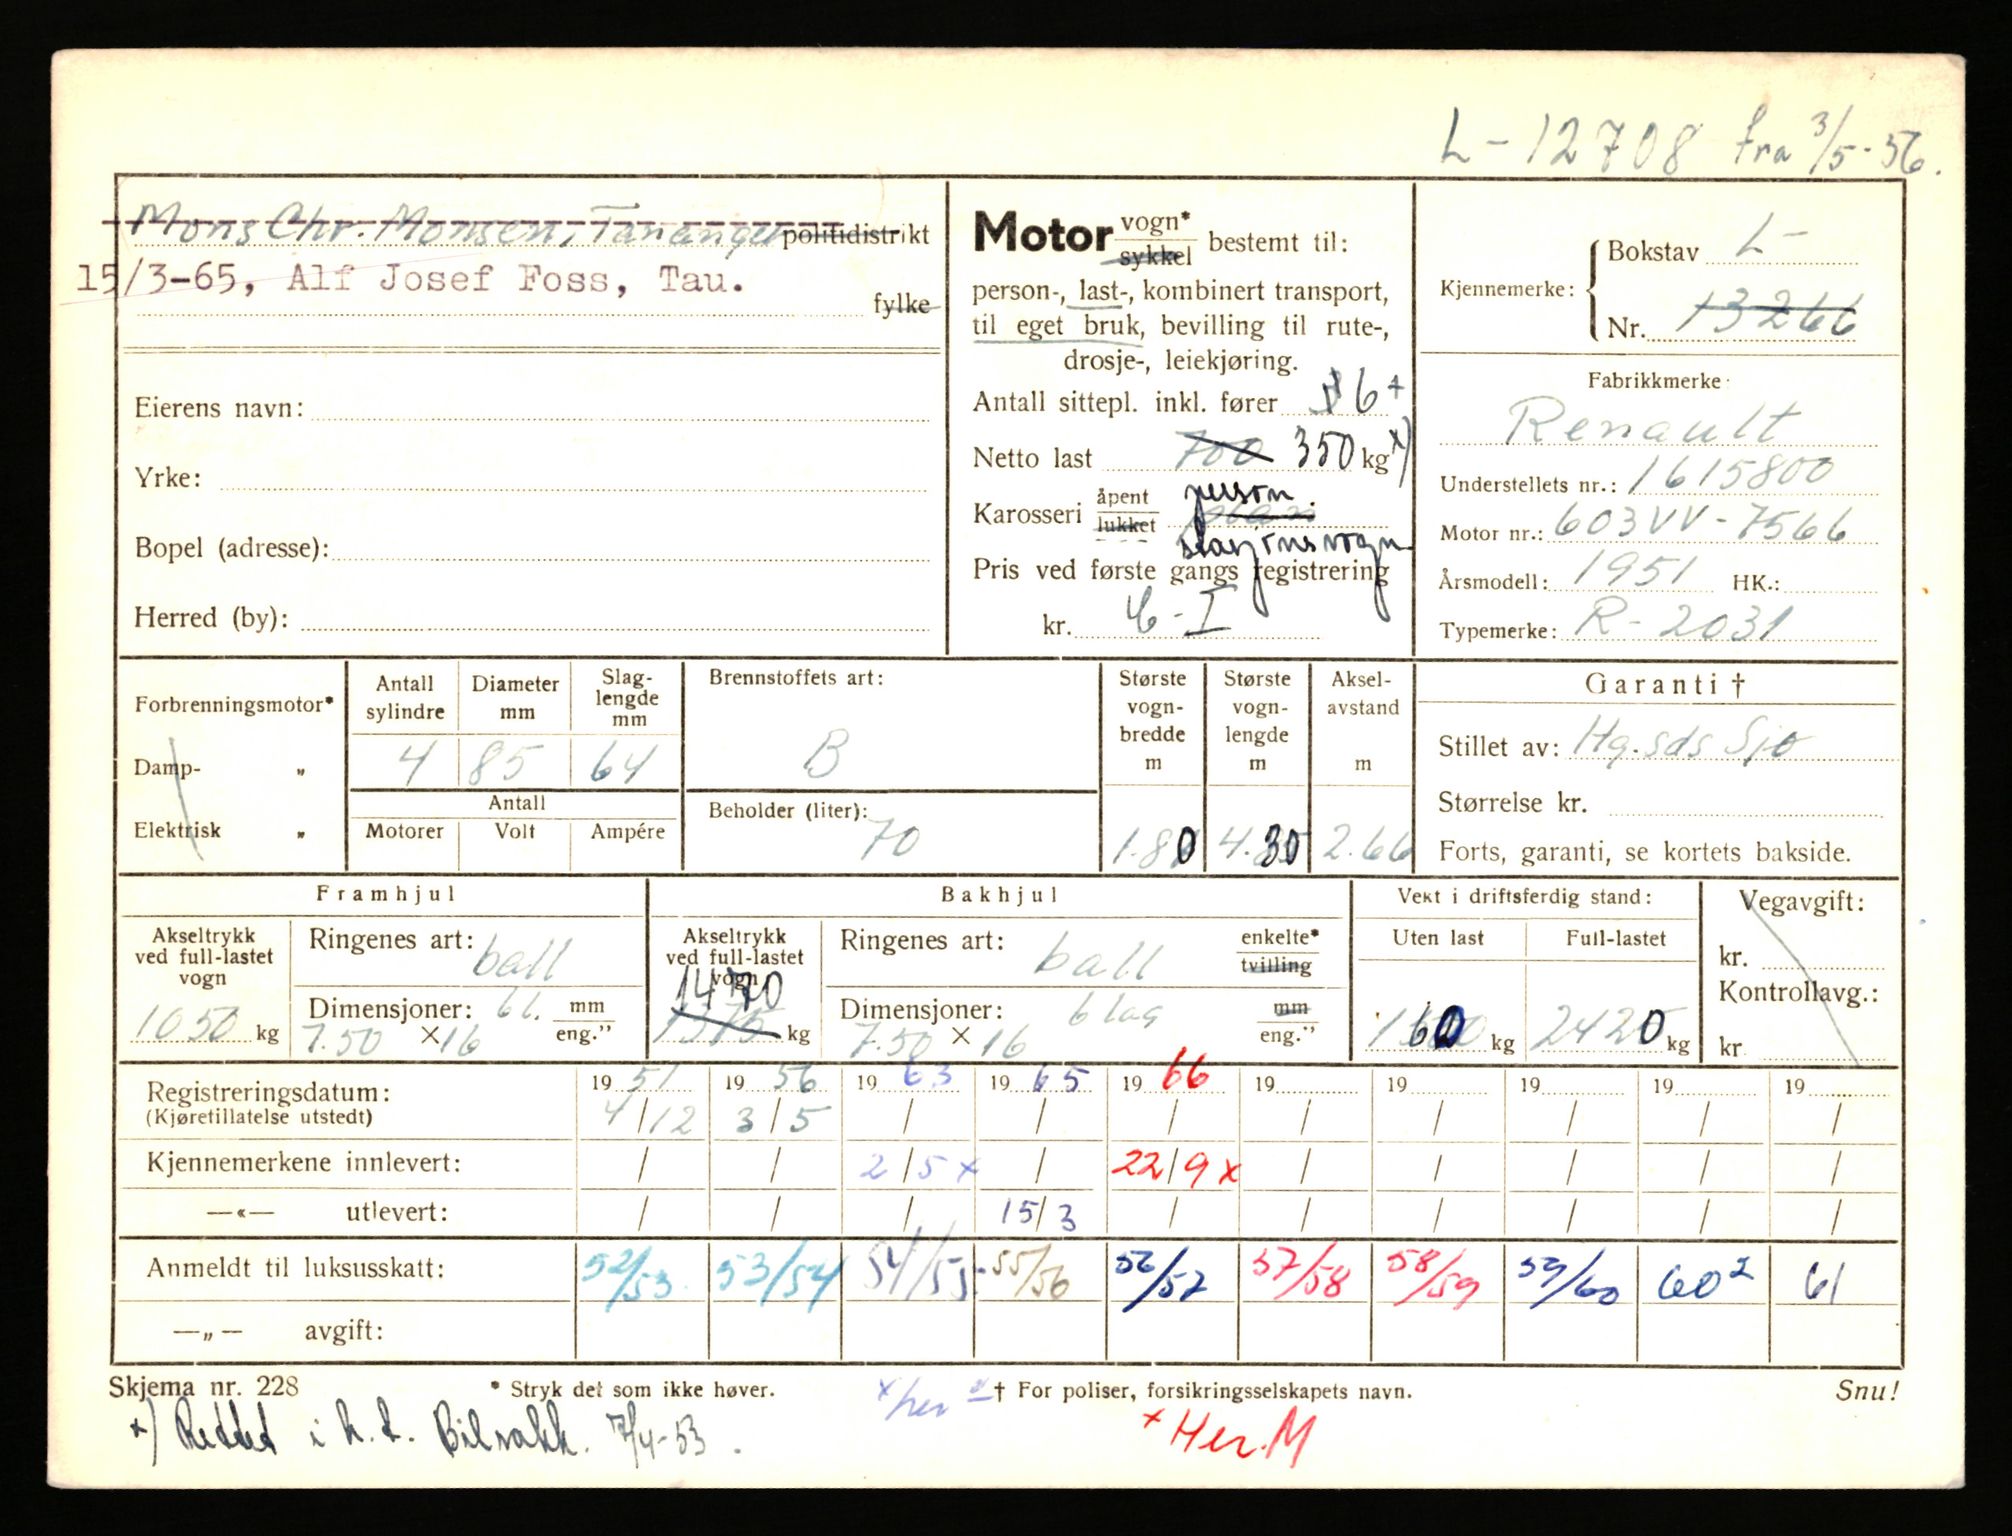 L-12708 fra 3/5-56.
Mons Chr. Monsen, Tananger politidistrikt
15/3-65, Alf Josef Foss, Tau.
fylke
Eierens navn:
Yrke:
Bopel (adresse):
Herred (by):
Motor vogn* sykkel bestemt til:
person-, last-, kombinert transport,
til eget bruk, bevilling til rute-,
drosje-, leiekjøring.
Antall sittepl. inkl. fører 6+
Netto last 700 350 kg x)
Karosseri åpent lukket person
stasjonsvogn
Pris ved første gangs registrering
kr. C-I
Kjennemerke: Bokstav L-
Nr. 13266
Fabrikkmerke:
Renault
Understellets nr.: 1615800
Motor nr.: 603VV-7566
Årsmodell: 1951 HK.:
Typemerke: R-2031
Forbrenningsmotor*
Damp- „
Elektrisk „
Antall sylindre
Diameter mm
Slaglengde mm
4 85 64
Antall
Motorer Volt Ampére
Brennstoffets art:
B
Beholder (liter):
70
Største vognbredde m
1.80
Største vognlengde m
4.30
Akselavstand m
2.66
Garanti †
Stillet av: Hg.sds Sjø
Størrelse kr.
Forts, garanti, se kortets bakside.
Framhjul
Akseltrykk ved full-lastet vogn
1050 kg
Ringenes art: ball
Dimensjoner: 6 l. mm
7.50 X 16 eng.”
Bakhjul
Akseltrykk ved full-lastet vogn
1470
1375 kg
Ringenes art: ball enkelte* tvilling
Dimensjoner: 6 lag mm
7.50 X 16 eng.”
Vekt i driftsferdig stand:
Uten last Full-lastet
kg 2420 kg
Vegavgift:
kr.
Kontrollavg.:
kr
Registreringsdatum: 19 51 19 56 19 63 19 65 19 66 19 19 19 19 19
(Kjøretillatelse utstedt) 4/12 3/5 / / / / / / / /
Kjennemerkene innlevert: / / 2/5 x / 22/9 x / / / / /
—«— utlevert: / / / 15/3 / / / / / /
Anmeldt til luksusskatt: 52/53 53/54 54/55 55/56 56/57 57/58 58/59 59/60 60² 61
—„— avgift:
Skjema nr. 228 * Stryk det som ikke høver. † For poliser, forsikringsselskapets navn. Snu!
x) Rettet i h.t. Bilsakk. 7/4-53.
x Her. M